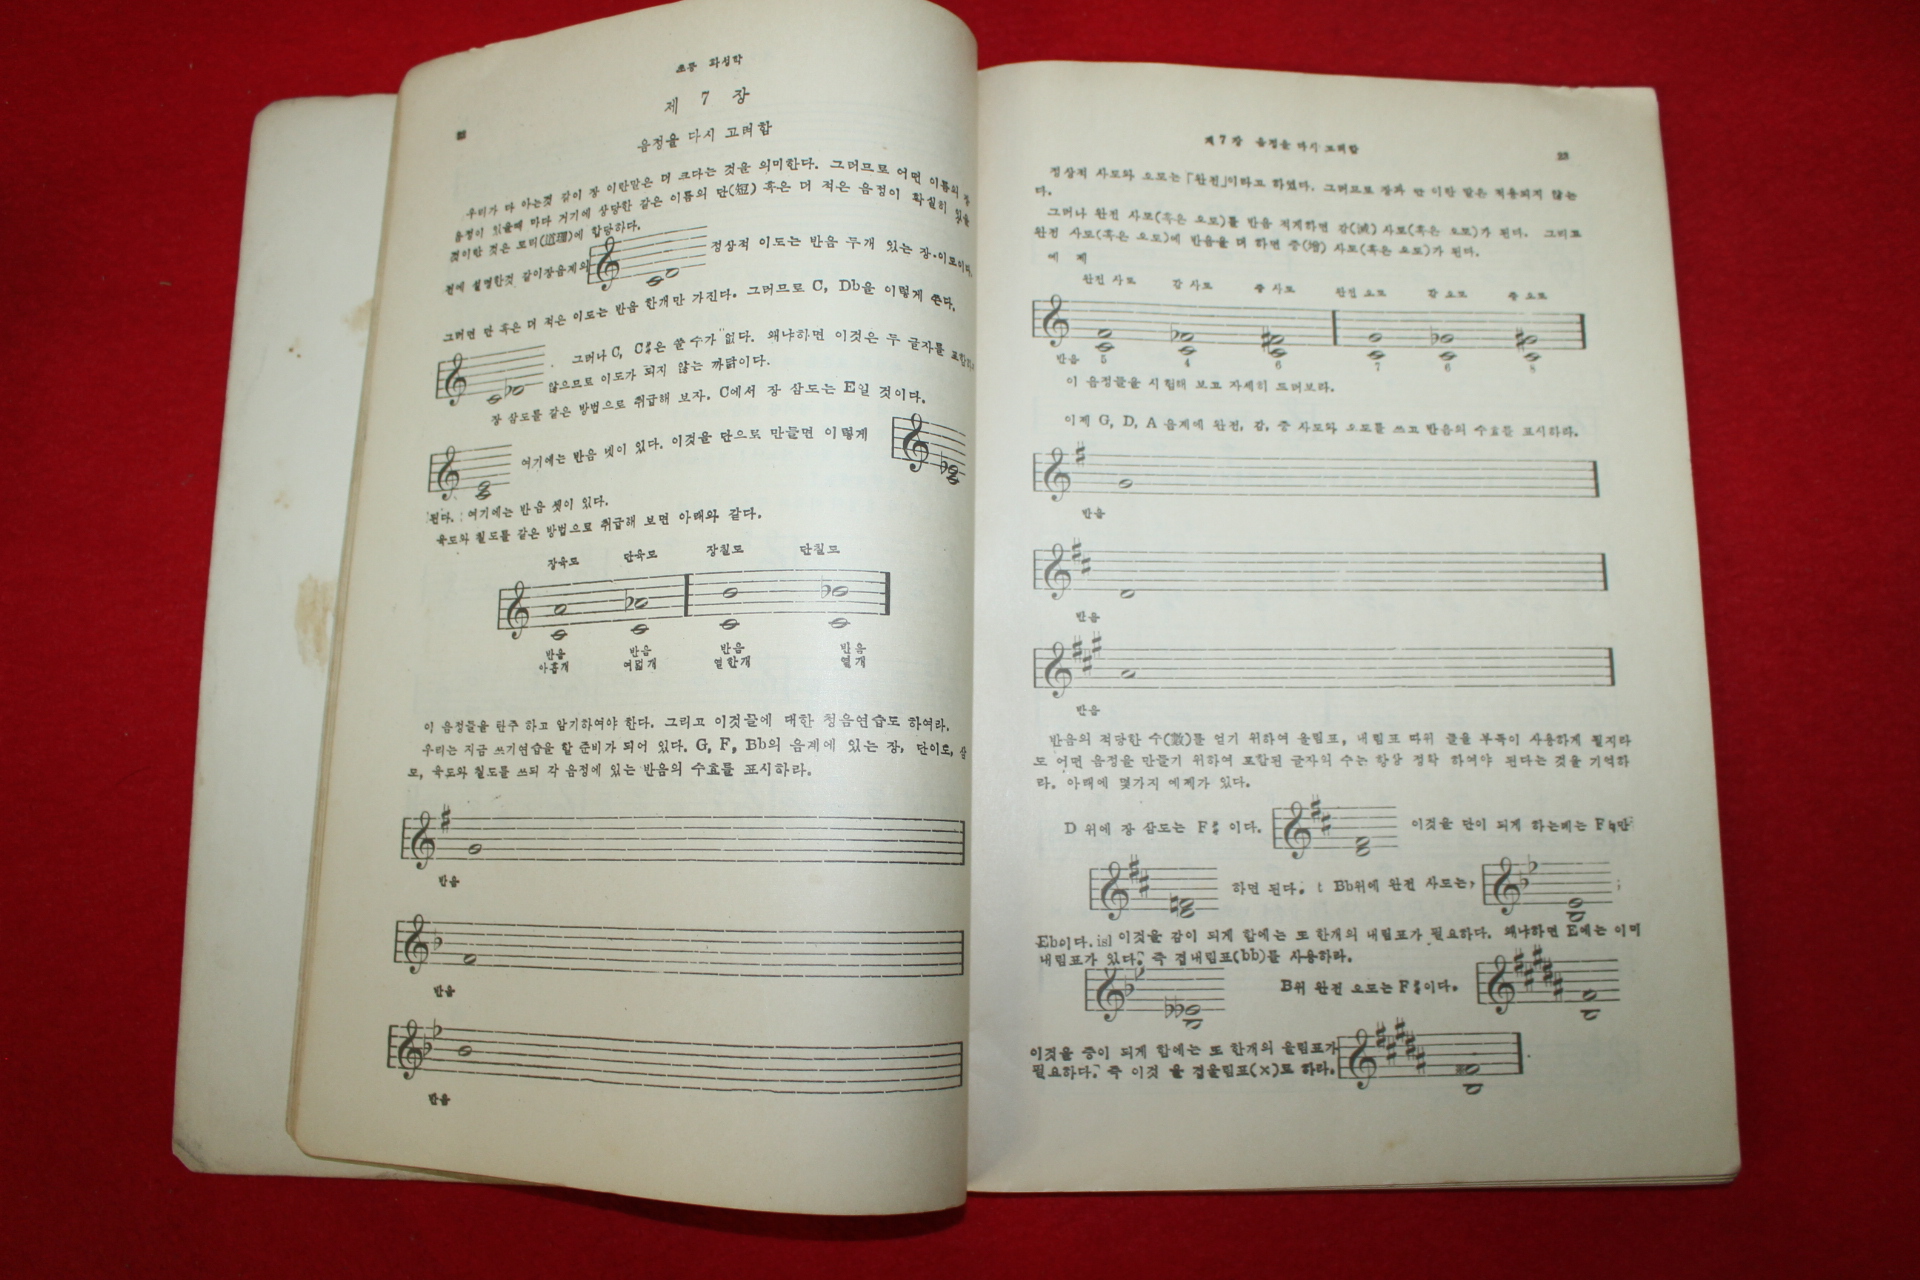 초등 화성학
제 7 장
음정을 다시 고려함
우리가 다 아는것 같이 장 이란말은 더 크다는 것을 의미한다. 그러므로 어떤 이름의 장
음정이 있을때 마다 거기에 상당한 같은 이름의 단(短) 혹은 더 적은 음정이 확실히 있을
것이란 것은 도리(道理)에 합당하다.
전에 설명한것 같이장음계의
정상적 이도는 반음 두개 있는 장·이도이다.
그러면 단 혹은 더 적은 이도는 반음 한개만 가진다. 그러므로 C, Db을 이렇게 쓴다.
그러나 C, C#은 쓸 수가 없다. 왜냐하면 이것은 두 글자를
않으므로 이도가 되지 않는 까닭이다.
장 삼도를 같은 방법으로 취급해 보자. C에서 장 삼도는 E일 것이다.
여기에는 반음 넷이 있다. 이것을 단으로 만들면 이렇게
된다. 여기에는 반음 셋이 있다.
육도와 칠도를 같은 방법으로 취급해 보면 아래와 같다.
장육도 단육도 장칠도 단칠도
반음 반음 반음 반음
아홉개 여덟개 열한개 열개
이 음정들을 탄주 하고 암기하여야 한다. 그리고 이것들에 대한 청음연습도 하여라.
우리는 지금 쓰기연습을 할 준비가 되어 있다. G, F, Bb의 음계에 있는 장, 단이도, 삼
도, 육도와 칠도를 쓰되 각 음정에 있는 반음의 수효를 표시하라.
반음
반음
반음
제 7 장 음정을 다시 고려함 23
정상적 사도와 오도는「완전」이라고 하였다. 그러므로 장과 단 이란 말은 적용되지 않는
다.
그러나 완전 사도(혹은 오도)를 반음 적게하면 감(減) 사도(혹은 오도)가 된다. 그리고
완전 사도(혹은 오도)에 반음을 더 하면 증(增) 사도(혹은 오도)가 된다.
예 제
완전 사도 감 사도 증 사도 완전 오도 감 오도 증 오도
반음 5 4 6 7 6 8
이 음정들을 시험해 보고 자세히 드러보라.
이제 G, D, A 음계에 완전, 감, 증 사도와 오도를 쓰고 반음의 수효를 표시하라.
반음
반음
반음
반음의 적당한 수(數)를 얻기 위하여 올림표, 내림표 따위 들을 부득이 사용하게 될지라
도 어떤 음정을 만들기 위하여 포함된 글자의 수는 항상 정확 하여야 된다는 것을 기억하
라. 아래에 몇가지 예제가 있다.
D 위에 장 삼도는 F# 이다.
이것을 단이 되게 하는데는 F♮만
하면 된다. t Bb위에 완전 사도는,
;
Eb이다. isl 이것을 감이 되게 함에는 또 한개의 내림표가 필요하다. 왜냐하면 E에는 이미
내림표가 있다. 즉 겹내림표(bb)를 사용하라.
B위 완전 오도는 F#이다.
이것을 증이 되게 함에는 또 한개의 올림표가
필요하다. 즉 이것 을 겹올림표(×)로 하라.